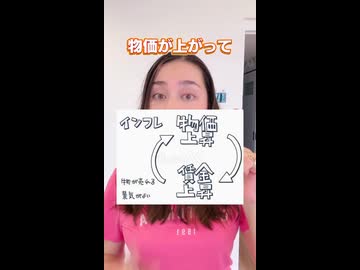 物価が上がって
インフレ
物価
上昇
賃金
上昇
物が売れる
景気がよい
real